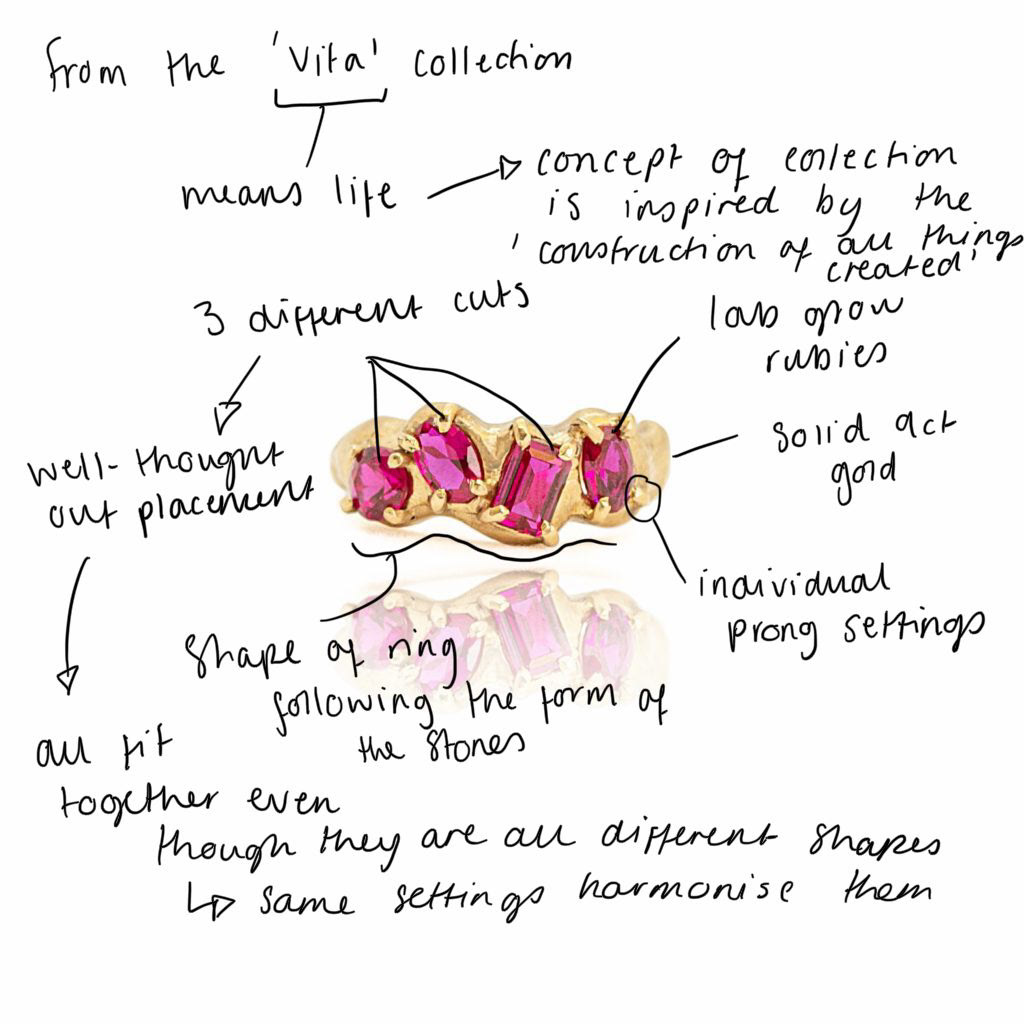 from the 'Vita' collection
means life
concept of collection
is inspired by the
'construction of all things
created'
3 different cuts
lab grow
rubies
well-thought
out placement
solid 9ct
gold
individual
prong settings
Shape of ring
following the form of
the stones
all fit
together even
though they are all different shapes
same settings harmonise them